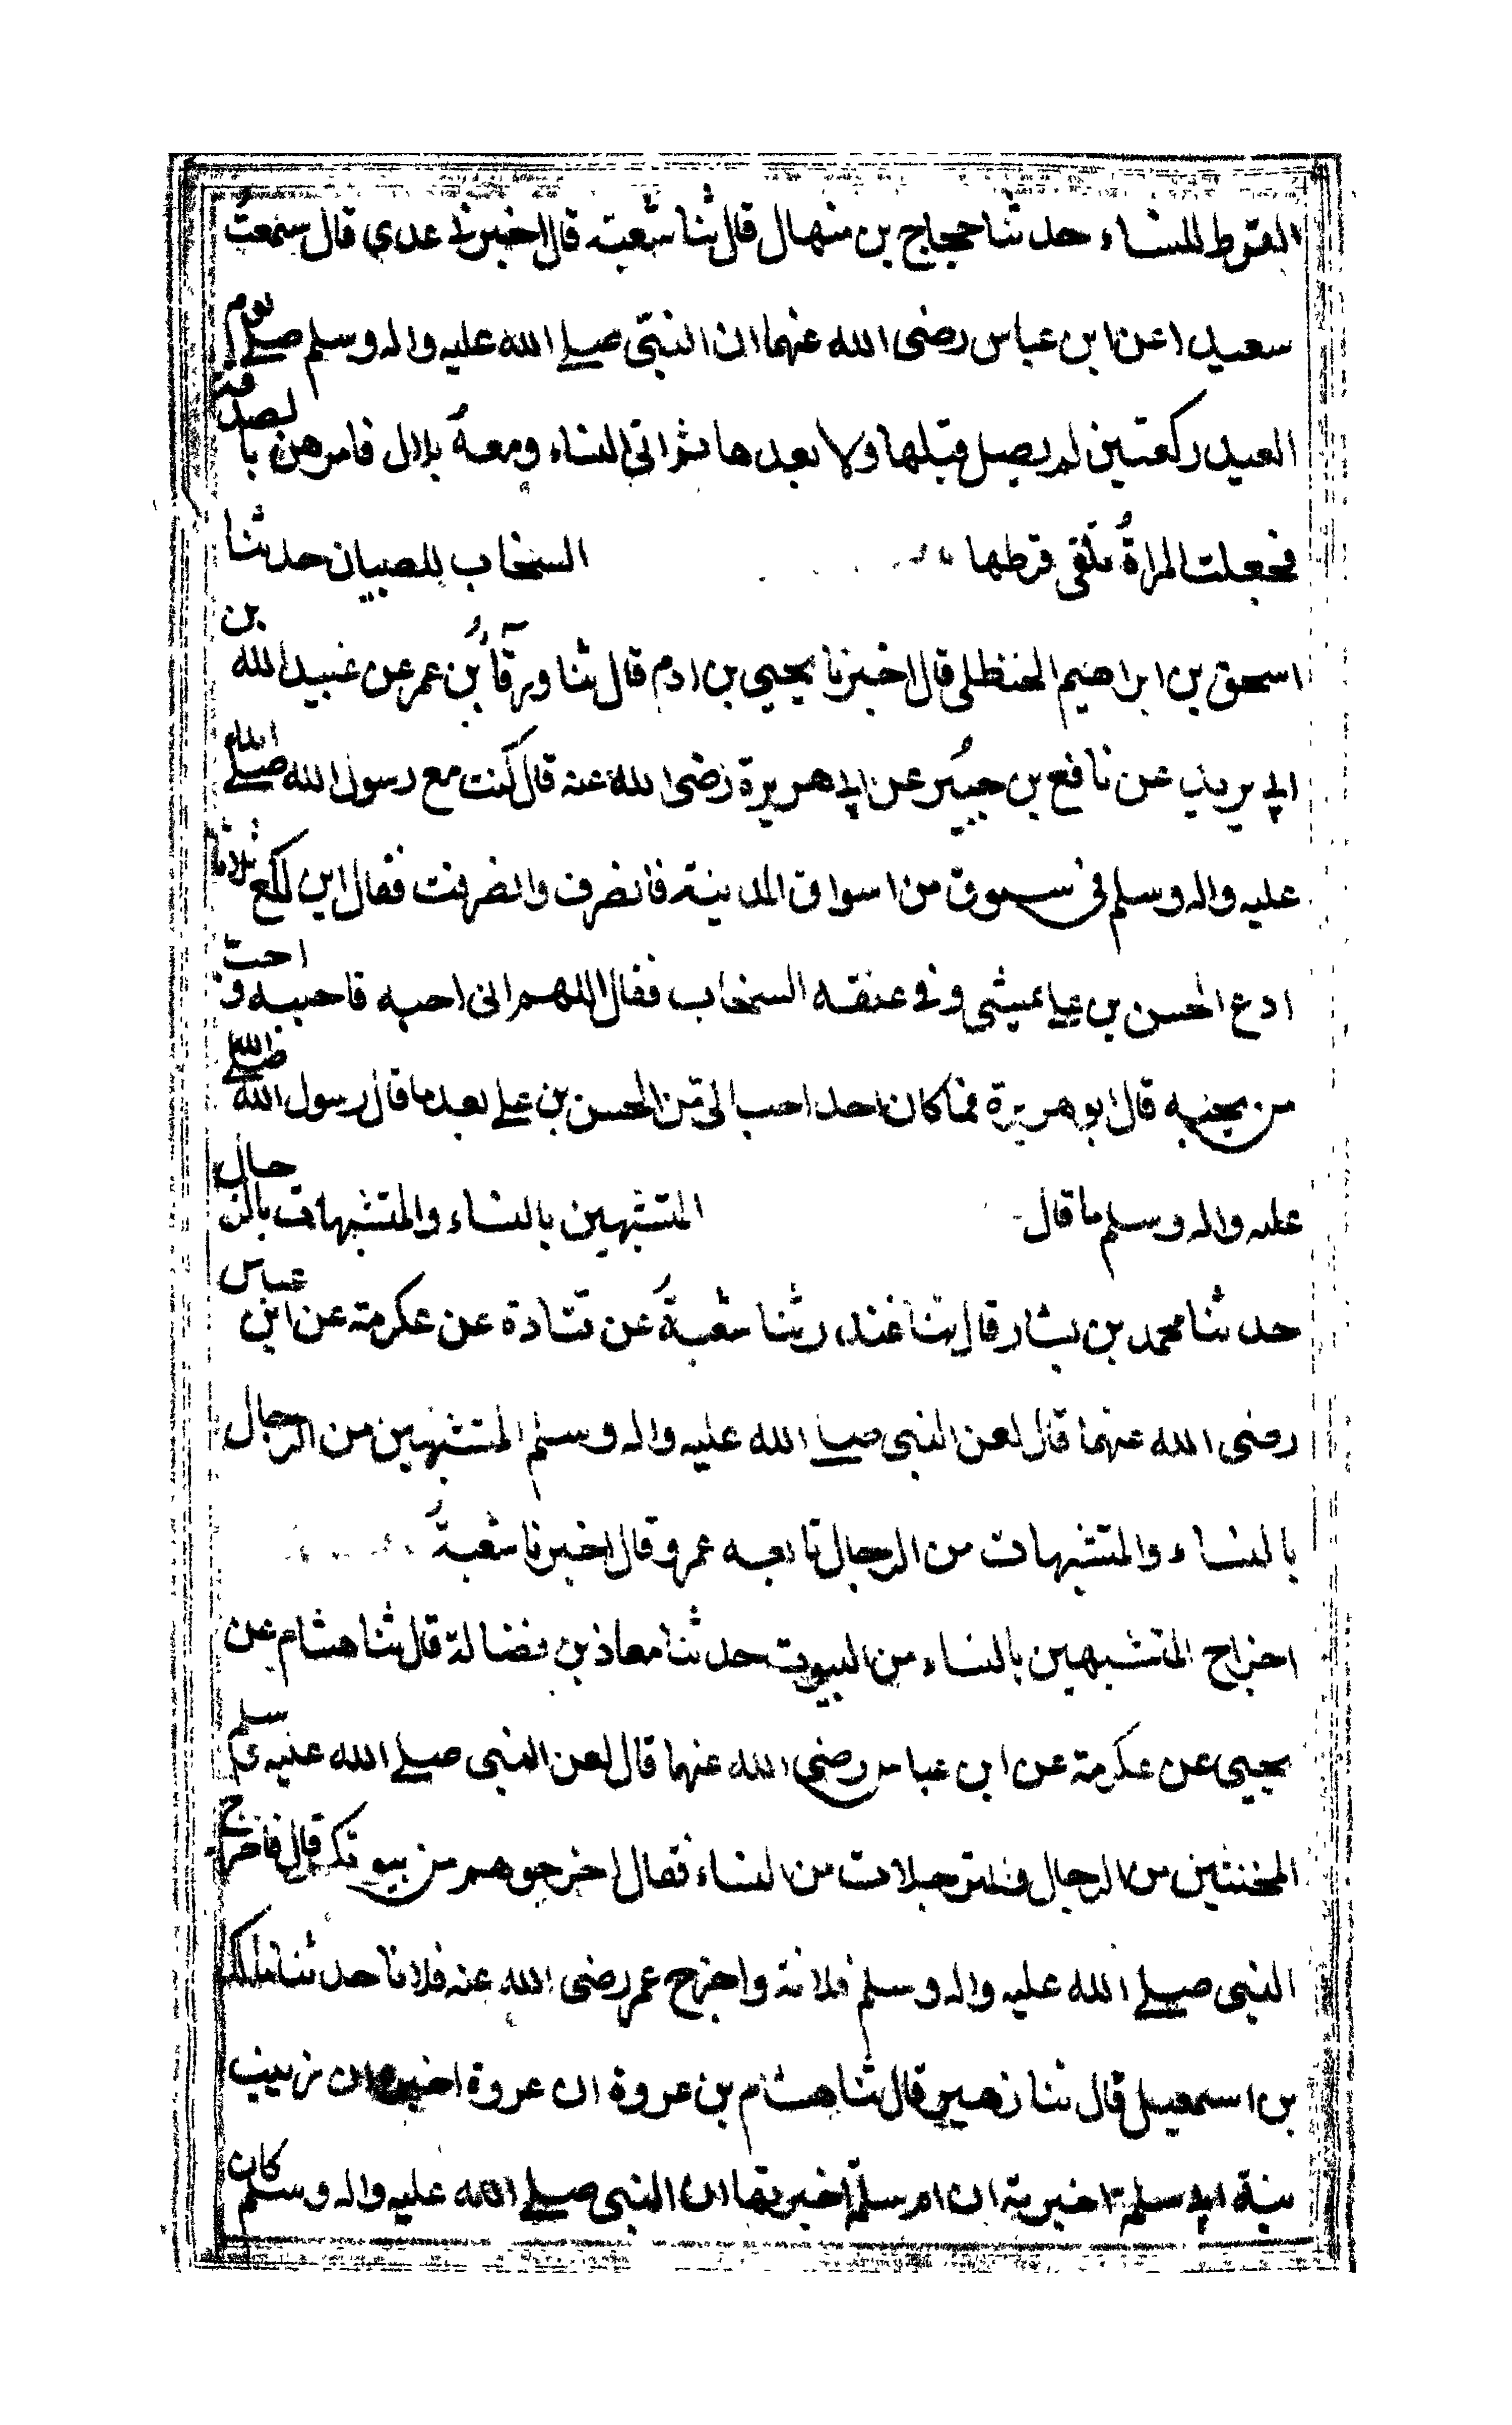 القرط للنساء حدثنا حجاج بن منهال قال ثنا شعبة قال اخبرني عدي قال سمعت
سعيدا عن ابن عباس رضى الله عنهما ان النبي صلے الله عليه واله وسلم صلے يوم
العيد ركعتين لم يصل قبلها ولا بعدها ثم اتى النساء ومعه بلال فامرهن بالصدقة
فجعلت المراة تلقى قرطها السخاب للصبيان حدثنا
اسحق بن ابراهيم الحنظلى قال اخبرنا يحيى بن ادم قال ثنا ورقآء بن عمر عن عبيد الله بن
ابي يزيد عن نافع بن جبير عن ابي هريرة رضى الله عنه قال كنت مع رسول الله صلے الله
عليه واله وسلم فى سوق من اسواق المدينة فانصرف وانصرفت فقال اين لكع ثلاثا
ادع الحسن بن علے يمشي وفي عنقه السخاب فقال اللهم انى احبه فاحببه واحب
من يحبه قال ابو هريرة فما كان احد احب الى من الحسن بن علے بعد ما قال رسول الله صلے الله
عليه واله وسلم ما قال المتشبهين بالنساء والمتشبهات بالرجال
حدثنا محمد بن بشار قال ثنا غندر ثنا شعبة عن قتادة عن عكرمة عن ابن عباس
رضى الله عنهما قال لعن النبى صلے الله عليه واله وسلم المتشبهين من الرجال
بالنساء والمتشبهات من الرجال تابعه عمرو قال اخبرنا شعبة
اخراج المتشبهين بالنساء من البيوت حدثنا معاذ بن فضالة قال ثنا هشام عن
يحيى عن عكرمة عن ابن عباس رضى الله عنهما قال لعن النبى صلے الله عليه وسلم
المخنثين من الرجال والمترجلات من النساء فقال اخرجوهم من بيوتكم قال فاخرج
النبى صلے الله عليه واله وسلم فلانة واخرج عمر رضى الله عنه فلانا حدثنا ملك
بن اسمعيل قال ثنا زهير قال ثنا هشام بن عروة ان عروة اخبره ان زينب
بنة ابي سلمة اخبرته ان ام سلمة اخبرتها ان النبى صلے الله عليه واله وسلم كان